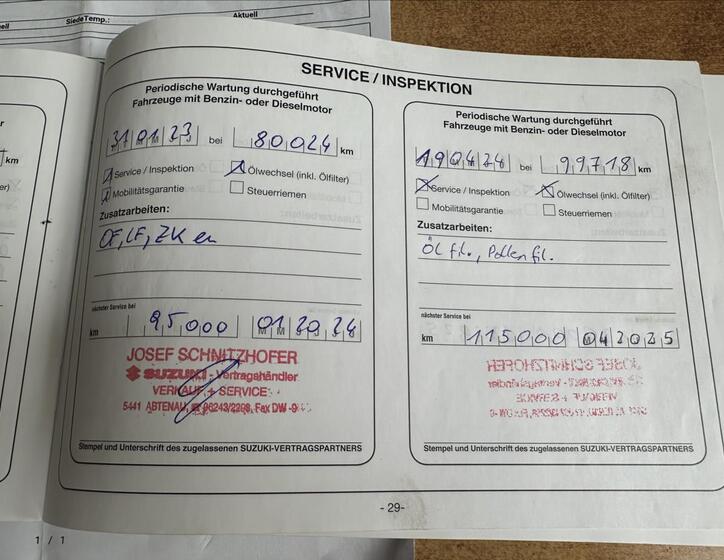 SiedeTemp.:
Aktuell
SERVICE / INSPEKTION
Periodische Wartung durchgeführt
Fahrzeuge mit Benzin- oder Dieselmotor
310123 bei 80024 km
Service / Inspektion Ölwechsel (inkl. Ölfilter)
Mobilitätsgarantie Steuerriemen
Zusatzarbeiten:
ÖF, LF, ZK en
nächster Service bei
km 95000 012024
JOSEF SCHNITZHOFER
SUZUKI - Vertragshändler
VERKAUF + SERVICE
5441 ABTENAU, 06243/2298, Fax DW -9
Stempel und Unterschrift des zugelassenen SUZUKI-VERTRAGSPARTNERS
Periodische Wartung durchgeführt
Fahrzeuge mit Benzin- oder Dieselmotor
190424 bei 99718 km
Service / Inspektion Ölwechsel (inkl. Ölfilter)
Mobilitätsgarantie Steuerriemen
Zusatzarbeiten:
Öl fil., Pollen fil.
nächster Service bei
km 115000 042025
Stempel und Unterschrift des zugelassenen SUZUKI-VERTRAGSPARTNERS
-29-
km
1 / 1